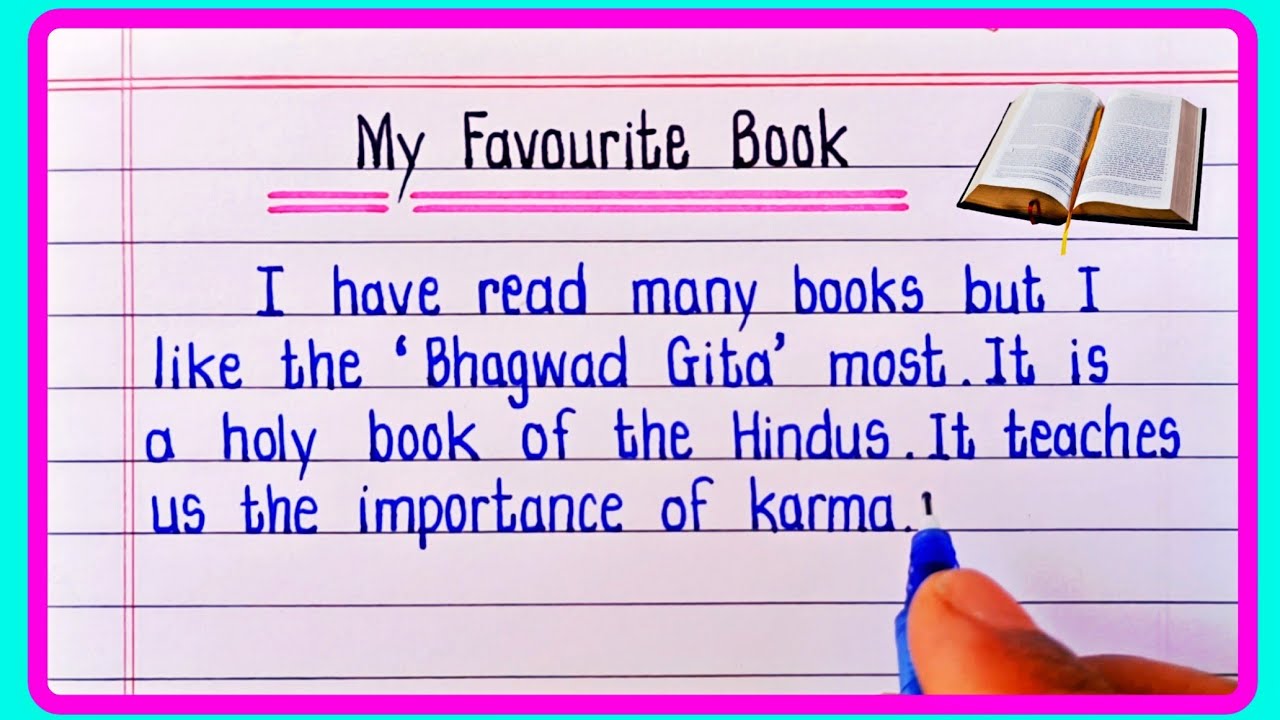 My Favourite Book
I have read many books but I
like the ‘Bhagwad Gita’ most. It is
a holy book of the Hindus. It teaches
us the importance of karma.